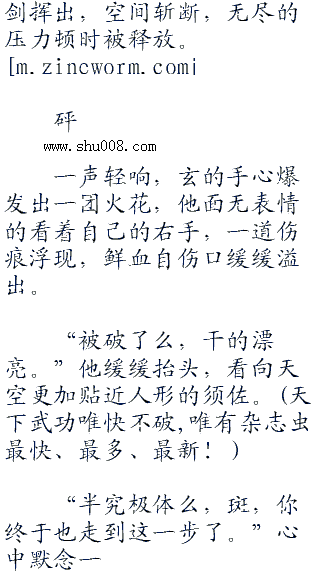 剑挥出，空间斩断，无尽的
压力顿时被释放。
[m.zincworm.com|
砰
www.shu008.com
一声轻响，玄的手心爆
发出一团火花，他面无表情
的看着自己的右手，一道伤
痕浮现，鲜血自伤口缓缓溢
出。
“被破了么，干的漂
亮。”他缓缓抬头，看向天
空更加贴近人形的须佐。(天
下武功唯快不破,唯有杂志虫
最快、最多、最新！)
“半究极体么，斑，你
终于也走到这一步了。”心
中默念一